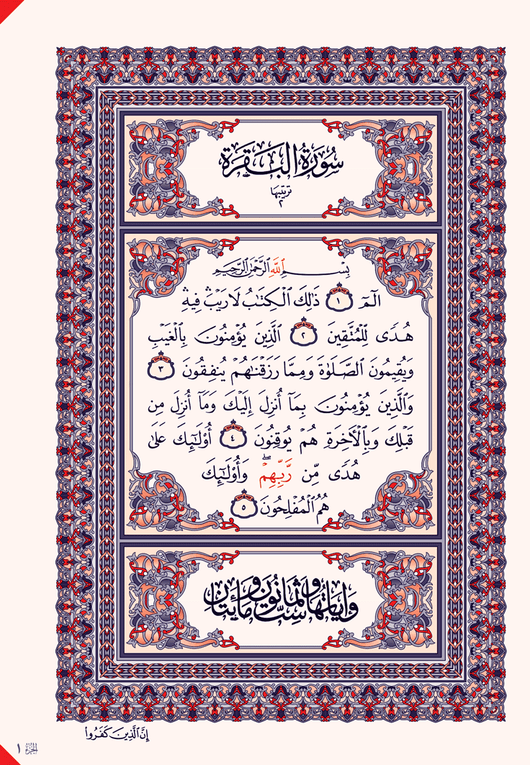 سُورَةُ الْبَقَرَةِ
تَرْتِيبُهَا
٢
بِسْمِ ٱللَّهِ ٱلرَّحْمَٰنِ ٱلرَّحِيمِ
الٓمٓ ١ ذَٰلِكَ ٱلْكِتَٰبُ لَا رَيْبَ ۛ فِيهِ ۛ
هُدًى لِّلْمُتَّقِينَ ٢ ٱلَّذِينَ يُؤْمِنُونَ بِٱلْغَيْبِ
وَيُقِيمُونَ ٱلصَّلَوٰةَ وَمِمَّا رَزَقْنَٰهُمْ يُنفِقُونَ ٣
وَٱلَّذِينَ يُؤْمِنُونَ بِمَآ أُنزِلَ إِلَيْكَ وَمَآ أُنزِلَ مِن
قَبْلِكَ وَبِٱلْأٓخِرَةِ هُمْ يُوقِنُونَ ٤ أُو۟لَٰٓئِكَ عَلَىٰ
هُدًى مِّن رَّبِّهِمْ ۖ وَأُو۟لَٰٓئِكَ
هُمُ ٱلْمُفْلِحُونَ ٥
وَآيَاتُهَا سِتٌّ وَثَمَانُونَ وَمِائَتَانِ
إِنَّ ٱلَّذِينَ كَفَرُوا۟
الجزء ١